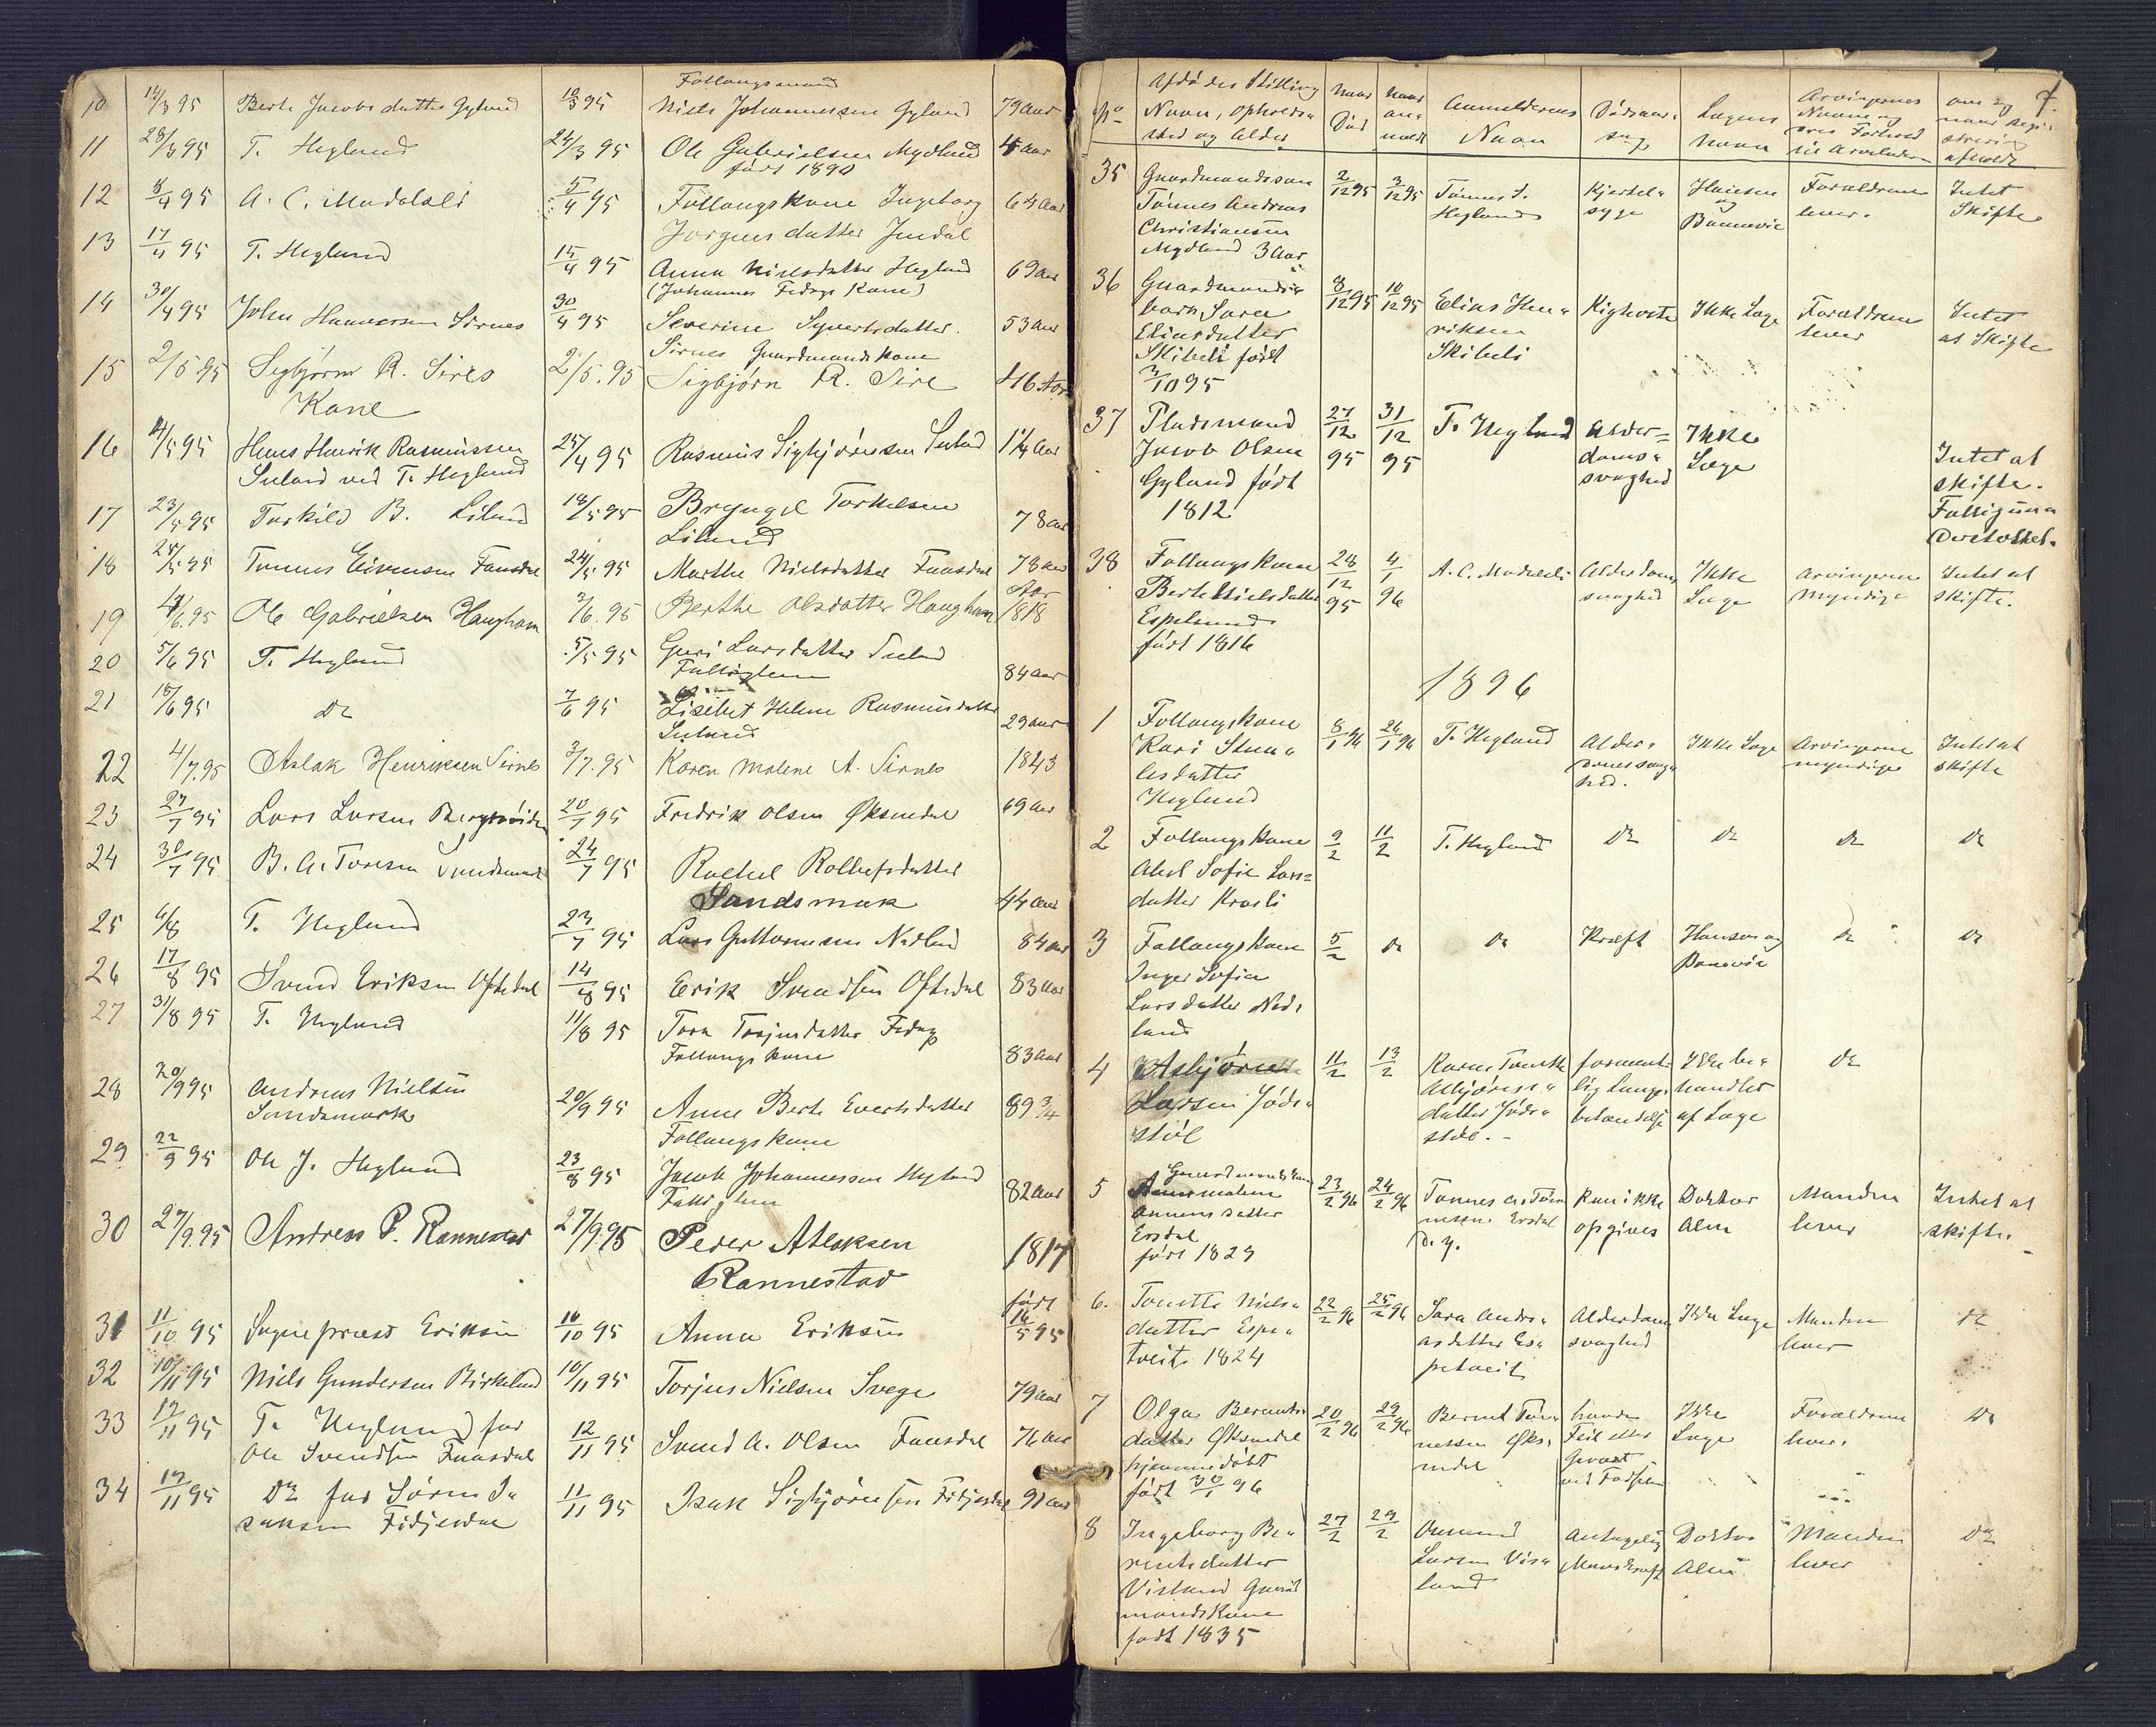 Follougsmand
10 14/3 95 Berte Jacobsdatter Gyland 10/3 95 Niels Johannessen Gyland 79 aar
11 28/3 95 T. Heglund 24/3 95 Ole Gabrielsen Mydland 4 aar
født 1890
12 8/4 95 A. C. Modalsli 5/4 95 Follougskone Ingeborg 64 aar
Jørgensdatter Jendal
13 17/4 95 T. Heglund 15/4 95 Anna Nielsdatter Heglund 69 aar
(Johannes Fedogs Kone)
14 30/4 95 John Hanversen Sirnes 30/4 95 Severine Syvertsdatter. 53 aar
Sirnes Gaardmandskone
15 2/5 95 Sigbjørn R. Sires 2/5. 95 Sigbjørn R. Sire 46 Aar
Kone
16 4/5 95 Hans Henrik Rasmussen 25/4 95 Rasmus Sigbjørnsen Seland 1 1/4 aar
Seland ved T. Heglund
17 23/5 95 Torkild B. Liland 18/5 95 Bryngel Torkelsen 78 aar
Liland
18 25/5 95 Tønnes Eivensen Fansdal 24/5 95 Marthe Nielsdatter Fansdal 78 aar
Aar
19 4/6. 95 Ole Gabrielsen Haugham 2/6. 95 Berthe Olsdatter Haugham 1818
20 5/6 95 T. Heglund 5/5 95 Guri Larsdatter Seland
Fattiglem 84 aar
21 18/6 95 do 7/6 95 Lisebet Helene Rasmusdatter 29 aar
Seland
22 4/7.95 Aslak Henriksen Sirnes 3/7. 95 Karen Malene A. Sirnes 1843
23 27/7 95 Lars Larsen 20/7 95 Fredrik Olsen Øksendal 69 aar
24 30/7 95 B. A. Toresen Sandsmark 24/7 95 Rachel Rollefsdatter
Sandsmark 44 aar
25 6/8 T. Heglund 23/7 95 Lars Guttormsen Nedland 84 aar
26 17/8 95 Svend Eriksen Oftedal 14/8 95 Erik Svendsen Oftedal 83 aar
27 31/8 95 T. Heglund 11/8 95 Tora Torjusdatter Fedog
Follougskone 83 aar
28 20/9 95 Andreas Nielsen
Sandsmark 20/9 95 Anne Berte Evertsdatter 89 3/4
Follougskone
29 22/9 95 Ole J. Heglund 23/8 95 Jacob Johannessen Heglund
Fattiglem 82 aar
30 27/9.95 Andreas P. Rannestad 27/9.95 Peder Atlaksen 1817
Rannestad
31 11/10 95 Sognepræst Eriksen 10/10 95 Anna Eriksen født
16/5 95
32 10/11 95 Niels Gundersen Birkeland 10/11 95 Torjus Nielsen Svege 79 aar
33 12/11 95 T. Heglund for 12/11 95 Svend A. Olsen Fansdal 76 aar
Ole Svendsen Fansdal
34 12/11 95 do for Søren I= 11/11 95 Isak Sigbjørnsen Fidjedal 91 aar
saksen Fidjedal
7.
No Afdødes Stilling
Navn, Opholds=
sted og Alder Naar
Død Naar
an=
meldt Anmelderens
Navn Dødsaar=
sag Lægens
Navn Arvingernes
Navne og
deres Forhold
til Arveladeren om og
naar regi=
strering
afholdt
35 Gaardmandssøn
Tønnes Andreas
Christiansen
Mydland 3 aar 2/12 95 3/12 95 Tønnes J.
Heglund Kjertel=
syge Hansen
og
Bannevie Forældrene
lever. Intet
Skifte
36 Gaardmands=
barn Sara
Eliasdatter
Skibeli født
3/10 95 8/12 95 10/12 95 Elias Hen=
riksen
Skibeli Kighoste Ikke Læge Forældrene
lever Intet
at Skifte
37 Pladsmand
Jacob Olsen
Gyland født
1812 27/12 95 31/12 95 T. Heglund Alder=
doms=
svaghed Ikke
Læge Intet at
skifte.
Fattigun=
derstøttet.
38 Follougskone
Berte Nielsdatter
Espelund
født 1816 28/12 95 4/1 96 A. C. Modalsli Alderdoms
svaghed Ikke
Læge Arvingerne
Myndige Intet at
skifte.
1896
1 Follougskone
Kari Stena=
lesdatter
Heglund 8/1 96 24/1 96 T. Heglund Alder=
domssvag=
hed. Ikke Læge Arvingerne
myndige Intet at
skifte
2 Follougskone
Abel Sofie Lars=
datter Kroeli 9/2 11/2 T. Heglund do do do do
3 Follougskone
Inger Sofie
Larsdatter Ned=
land 5/2 do do Kræft Hansen og
Banevie do do
4 Asbjørn
Larsen Jøds=
støl 11/2 13/2 Karen Tomine
Asbjørns=
datter Jøds=
støl. forment=
lig Lunge=
betændelse Ikke be=
handlet
af Læge do
5 Gaardmandskone
Anne Malene
Aanensdatter
Ersdal
født 1823 23/2 96 24/2 96 Tønnes A. Tøn=
nesen Ersdal
d. y. Kan ikke
opgives Doktor
Alm Manden
lever Intet at
skifte.
6. Tonette Niels=
datter Espe=
tveit. 1824 22/2 96 25/2 96 Sara Andre=
asdatter Es=
petveit Alderdoms
svaghed Ikke Læge Manden
lever do
7 Olga Bernts=
datter Øksendal
hjemmedøbt
født 30/1 96 20/2 96 29/2 96 Bernt Tøn=
nessen Øks=
endal Feil eller
ved Fødselen Ikke
Læge Forældrene
lever. do
8 Ingeborg Be=
rentsdatter
Visland Gaard
mandskone
født 1835 27/2 29/2 Omund
Larsen Vis=
land Antagelig
Mavekræft Doktor
Alm Manden
lever do